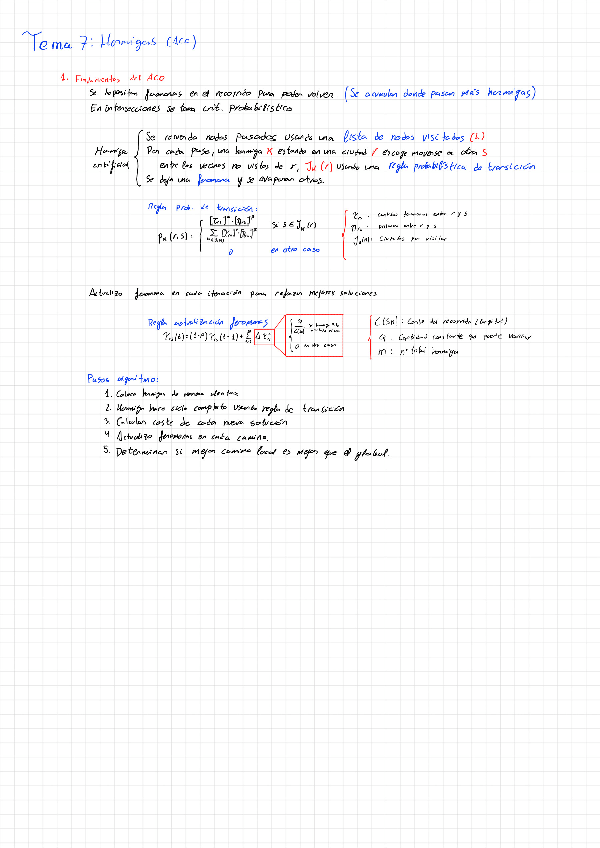 Tema 7: Hormigas (ACO)
1. Fundamentos del ACO
Se depositan feromonas en el recorrido para poder volver (Se acumulan donde pasan más hormigas)
En intersecciones se toma crit. probabilístico
Hormiga artificial
Se recuerda nodos pasados usando una lista de nodos visitados (L)
Por cada paso, una hormiga K estando en una ciudad r escoge moverse a otra s
entre los vecinos no vistos de r, J_K(r) usando una regla probabilística de transición
Se deja una feromona y se evaporan otras.
Regla prob. de transición:
P_K(r,s) = { [τ_rs]^α · [η_rs]^β / Σ [τ_ru]^α · [η_ru]^β si s ∈ J_K(r)
0 en otro caso
τ_rs : cantidad feromonas entre r y s
η_rs : entre r y s
J_K(r) : Ciudades por visitar
Actualizo feromona en cada iteración para reforzar mejores soluciones
Regla actualización feromonas
τ_rs(t) = (1-ρ) τ_rs(t-1) + Σ Δτ_rs^K
0 en otro caso
C(S_K) : Coste del recorrido (longitud)
Q : Cantidad constante que aporta hormiga
m : nº total hormigas
Pasos algoritmo:
1. Coloco hormigas de manera aleatoria
2. Hormiga hace ciclo completo usando regla de transición
3. Calculan coste de cada nueva solución
4. Actualizo feromonas en cada camino.
5. Determinan si mejor camino local es mejor que el global.